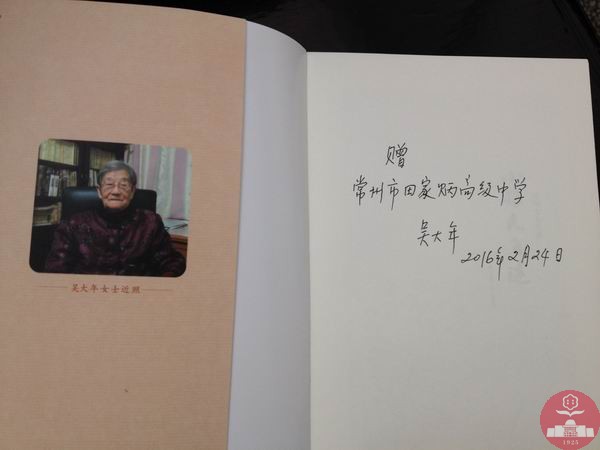 吴大年女士近照
赠
常州市田家炳高级中学
吴大年
2016年2月24日
1925